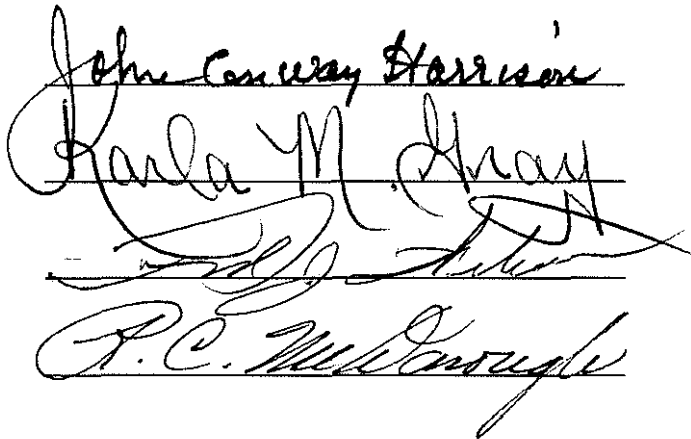 John Conway Harrison
Karla M. Gray
R. C. McDonough